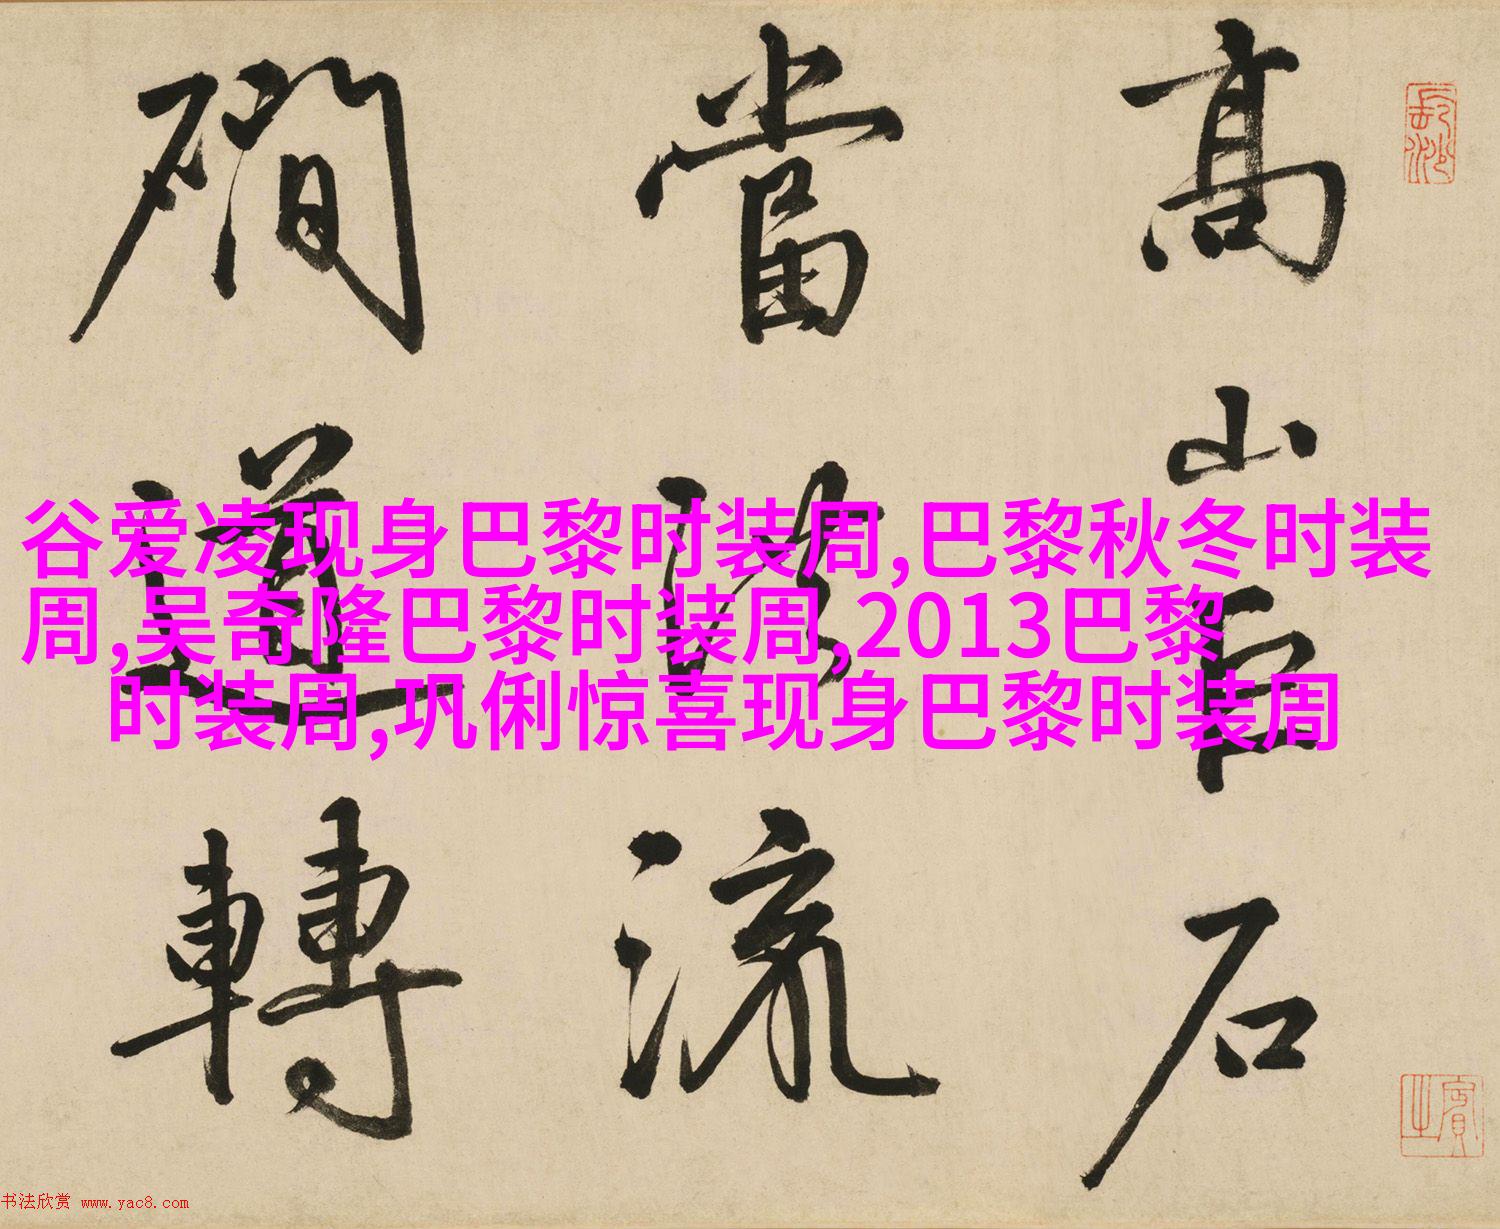 長沙
高山巨石
當
流
磵道轉
賓之
谷爱凌现身巴黎时装周,巴黎秋冬时装
周,吴奇隆巴黎时装周,2013巴黎
时装周,巩俐惊喜现身巴黎时装周
书法欣赏 www.yac8.com